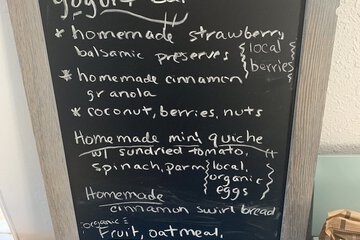 yogurt bar
* homemade strawberry
balsamic preserves {local berries}
* homemade cinnamon
granola
* coconut, berries, nuts
Homemade mini quiche
w/ sundried tomato,
spinach, parm {local, organic eggs
Homemade
cinnamon swirl bread
organic
Fruit, oatmeal,